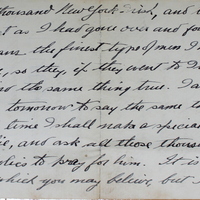 thousand New York Irish, and
t as I had gone over and fo
ans the finest type of men I
, so they, if they went to D
nd the same thing true. I a
tomorrow to say the same t
time I shall make a special
lie, and ask all those thous
to pray for him. It is
which you may believe, but I